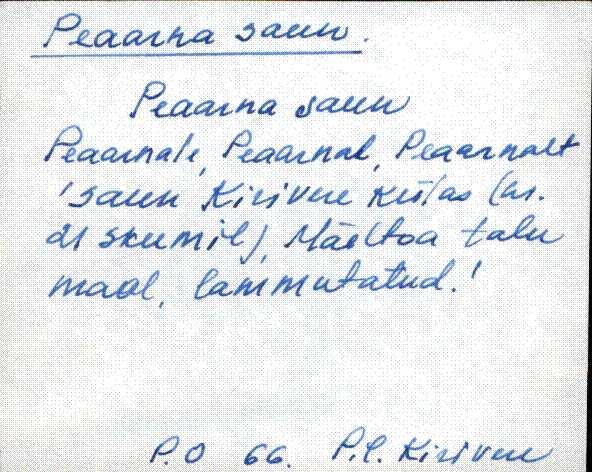 Peaarna saun.
Peaarna saun
Peaarnale, Peaarnal, Peaarnalt
'saun Kirivere külas (nr.
21 skeemil), Mäeltoa talu
maal, lammutatud.'
P.O 66. P.l. Kirivere